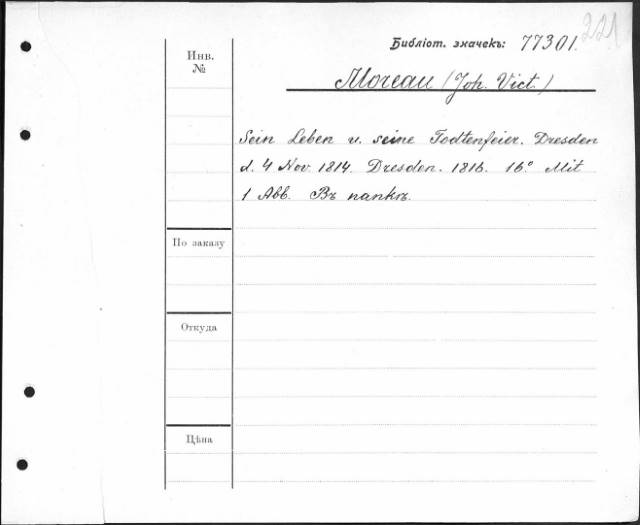 221
Библіот. значекъ: 77301.
Инв.
№
Moreau (Joh. Vict.)
Sein Leben u. seine Todtenfeier. Dresden
d. 4 Nov. 1814. Dresden. 1816. 16.° Mit
1 Abb. Въ папкѣ.
По заказу
Откуда
Цѣна